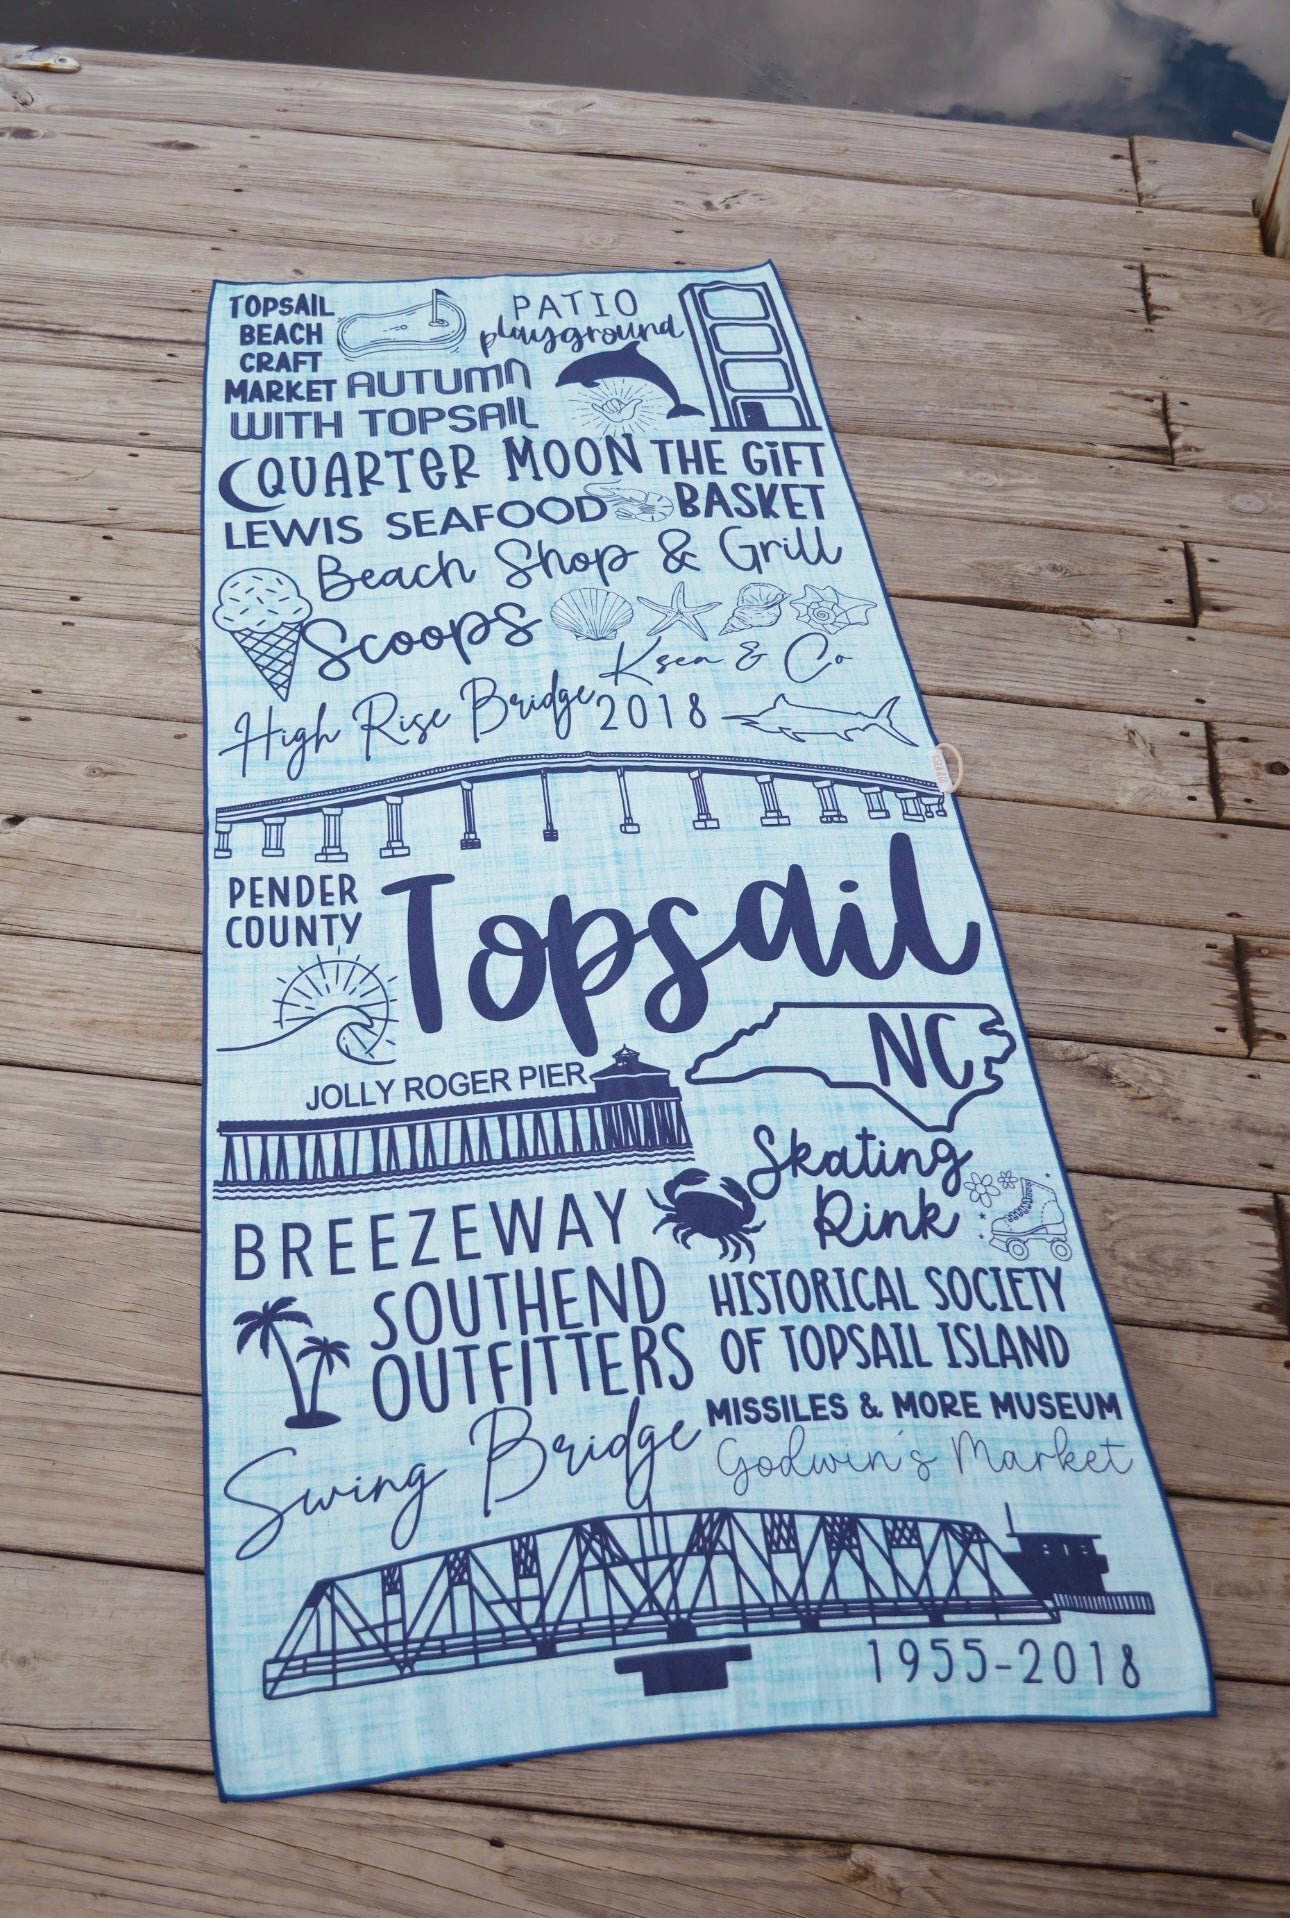 TOPSAIL
BEACH
CRAFT
MARKET
PATIO
playground
AUTUMN
WITH TOPSAIL
QUARTER MOON
THE GIFT
BASKET
LEWIS SEAFOOD
Beach Shop & Grill
Scoops
Ksea & Co
High Rise Bridge
2018
PENDER
COUNTY
Topsail
NC
JOLLY ROGER PIER
Skating
Rink
BREEZEWAY
SOUTHEND
OUTFITTERS
HISTORICAL SOCIETY
OF TOPSAIL ISLAND
MISSILES & MORE MUSEUM
Godwin's Market
Swing Bridge
1955-2018